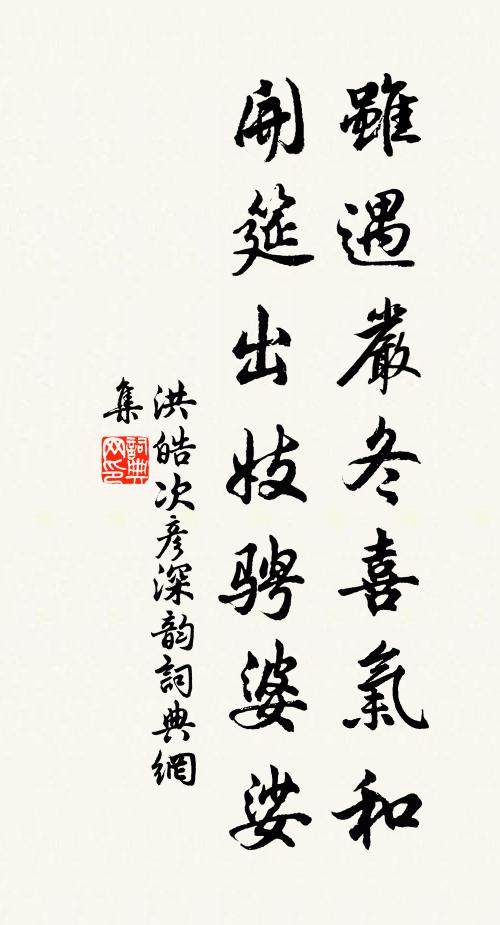 雖遇嚴冬喜氣和
開筵出妓騁婆娑
洪皓次彥深韵詞典網
集
詞典网印